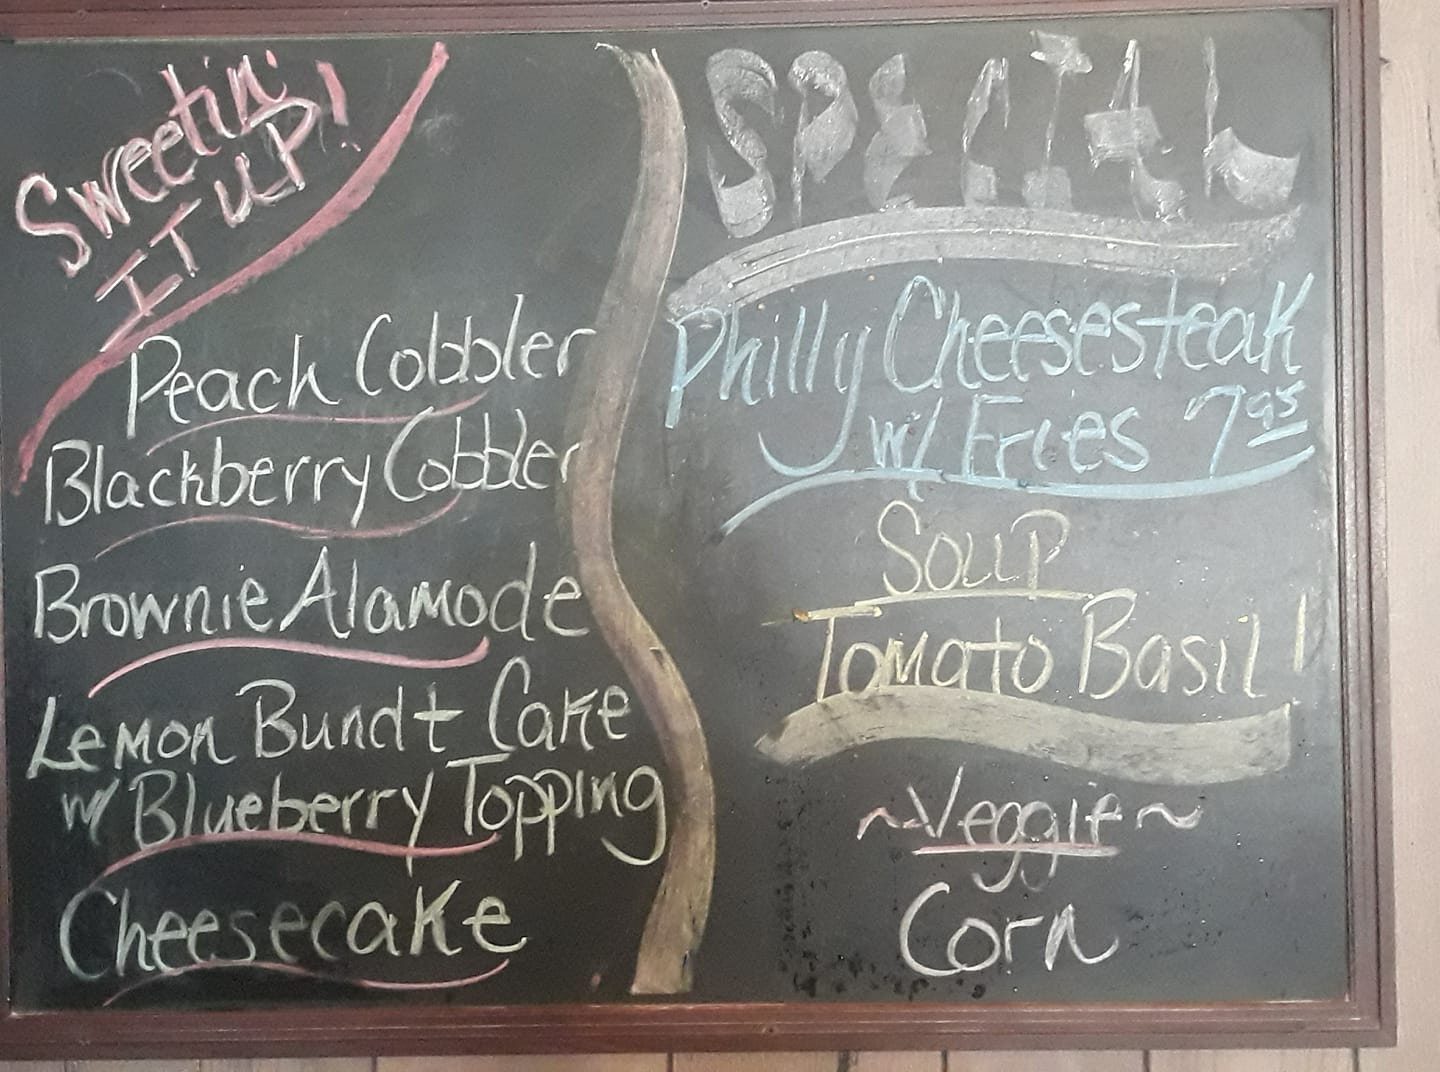 Sweetin'
IT UP!
Peach Cobbler
Blackberry Cobbler
Brownie Alamode
Lemon Bundt Cake
w/ Blueberry Topping
Cheesecake
SPECIAL
Philly Cheesesteak
w/ Fries 7.95
Soup
Tomato Basil!
~Veggie~
Corn